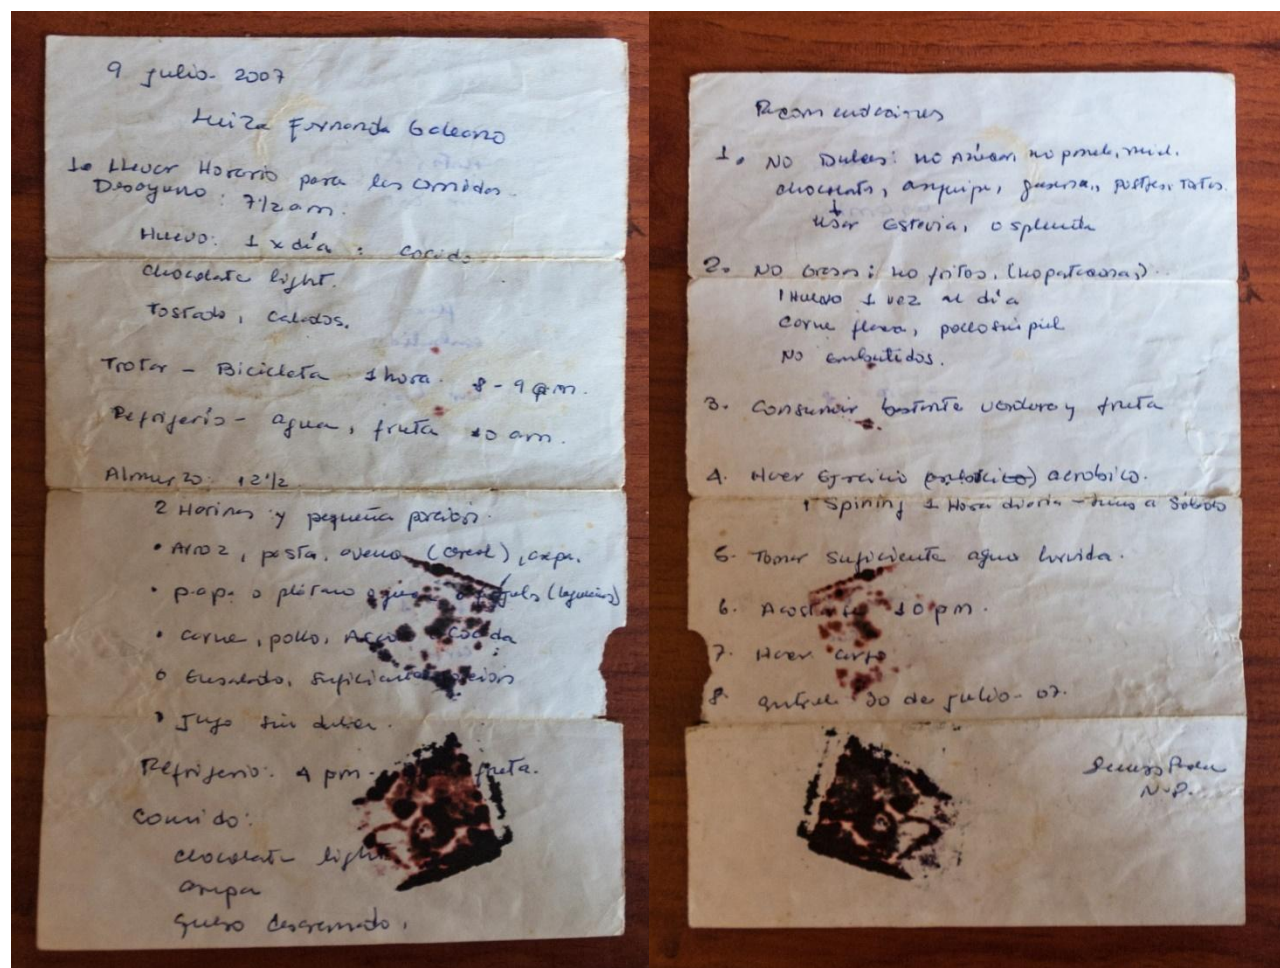 9 julio 2007
Luiza Fernanda Galeano
1. Llevar Horario para las comidas.
Desayuno: 7 1/2 am.
Huevo: 1 x día: cocido
chocolate light.
Tostado, Calados.
Trotar - Bicicleta 1 hora. 8 - 9 am.
Refrigerio - agua, fruta 10 am.
Almuerzo: 12 1/2
2 Harinas y pequeña porción.
• Arroz, pasta, avena (cereal), arepa.
• papa o plátano o
• carne, pollo, cocida
• Ensalada, suficiente porción
• Jugo sin dulce.
Refrigerio: 4 pm. fruta.
Comida:
chocolate light
arepa
queso descremado.
Recomendaciones
1. NO Dulces: no Azúcar, no panela, miel.
chocolate, arequipe, gaseosa, postres, tortas.
Usar Estevia, o splenda
2. NO Grasas: no fritos,
1 Huevo 1 vez al día
Carne flaca, pollo sin piel
No embutidos.
3. Consumir bastante verdura y fruta
4. Hacer Ejercicio aerobico.
Spining 1 Hora diaria - lunes a Sábado
5. Tomar suficiente agua hervida.
6. Acostarse 10 pm.
7. Hacer
8. 30 de julio - 07.
N.D.